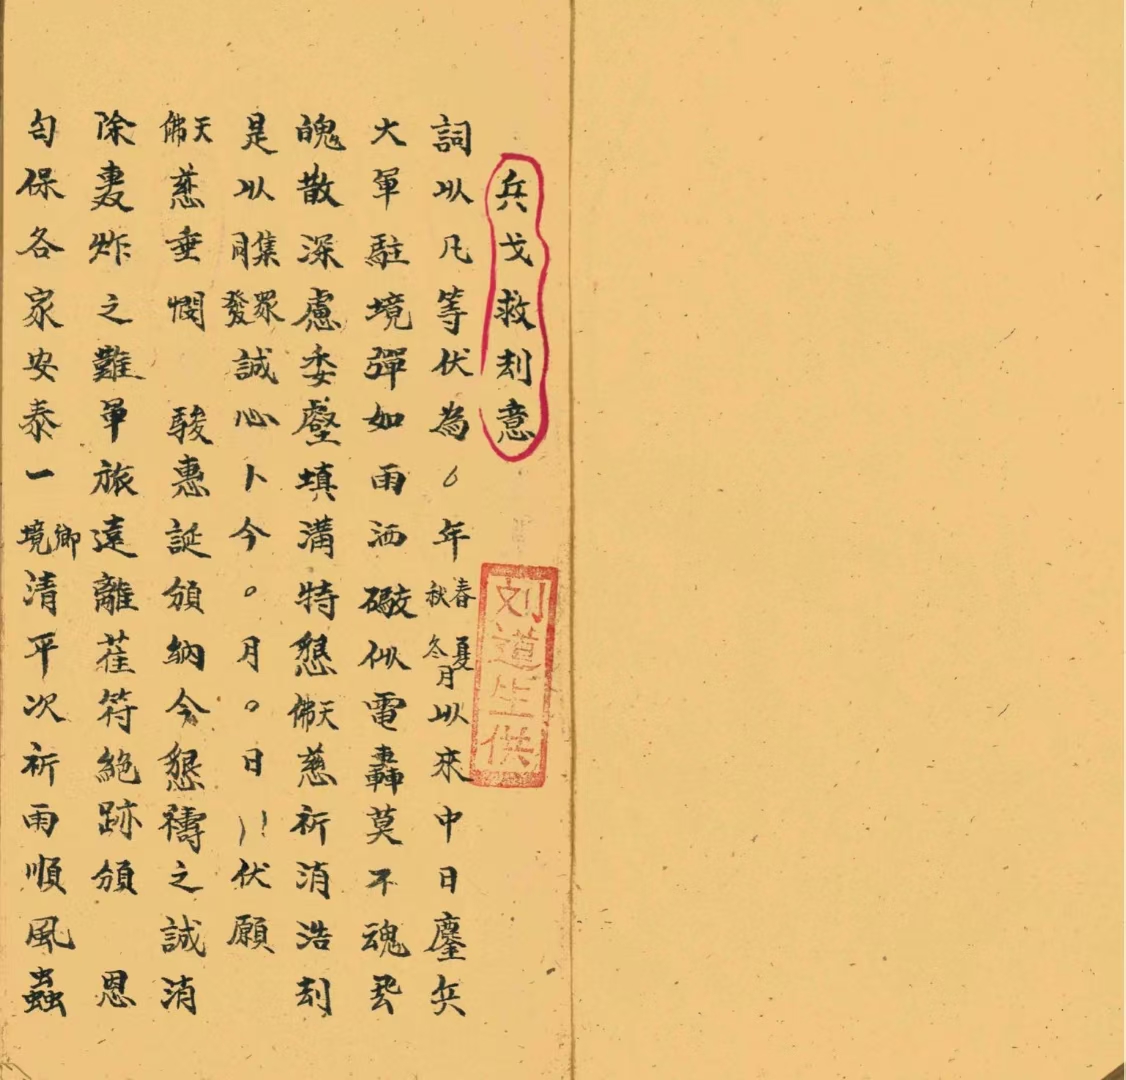 兵戈救刦意
詞以凡等伏為〇年春秋夏冬月以來中日鏖兵
大軍駐境彈如雨洒礮似電轟莫不魂飛
魄散深慮委壑填溝特懇天佛慈祈消浩刦
是以集眾同發誠心卜今〇月〇日伏願
天佛慈垂憫 駿惠誕頒納今懇禱之誠消
除軣炸之難軍旅遠離萑符絶跡頒 恩
匀保各家安泰一鄉境清平次祈雨順風蟲
刘道生供